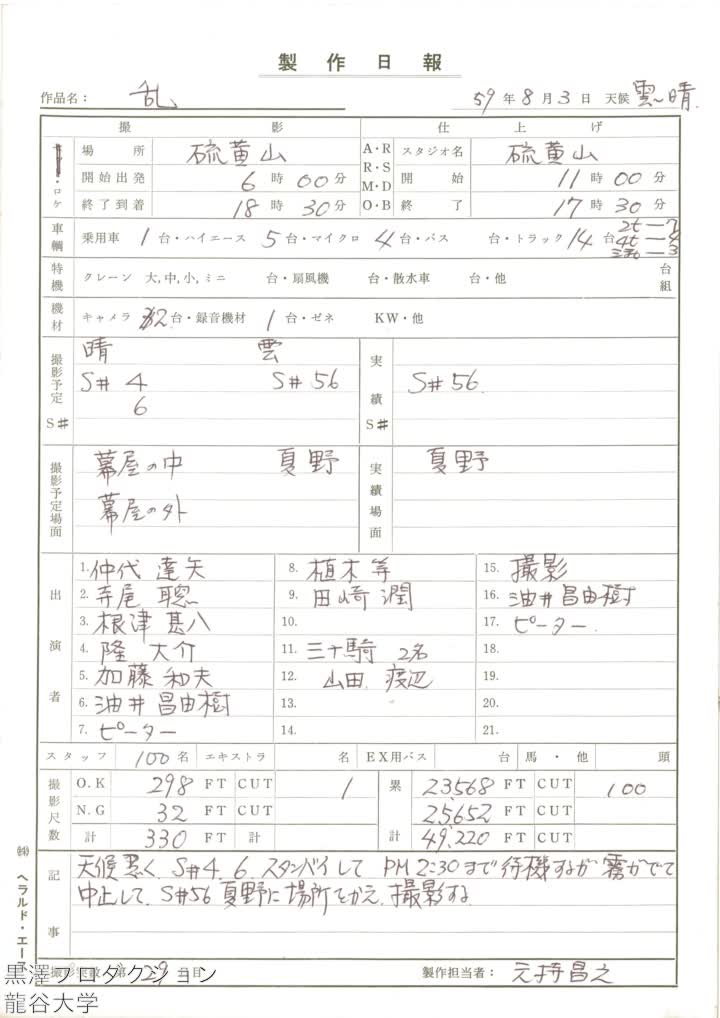 製作日報
作品名： 乱 59年8月3日 天候 雲〜晴
撮影 仕上げ
・ロケ 場所 硫黄山 A・R R・S M・D O・B スタジオ名 硫黄山
開始出発 6時00分 開始 11時00分
終了到着 18時30分 終了 17時30分
車輌 乗用車 1台・ハイエース 5台・マイクロ 4台・バス 台・トラック 14台 2t—7 4t—4
特機 クレーン 大,中,小,ミニ 台・扇風機 台・散水車 台・他 台組
機材 キャメラ 2台・録音機材 1台・ゼネ KW・他
撮影予定 S# 晴 雲 実績 S#
S# 4 S# 56 S# 56
6
撮影予定場面 幕屋の中 夏野 実績場面 夏野
幕屋の外
出演者
1. 仲代達矢 8. 植木等 15. 撮影
2. 寺尾聰 9. 田崎潤 16. 油井昌由樹
3. 根津甚八 10. 17. ピーター
4. 隆大介 11. 三十騎 2名 18.
5. 加藤和夫 12. 山田、渡辺 19.
6. 油井昌由樹 13. 20.
7. ピーター 14. 21.
スタッフ 100名 エキストラ 名 EX用バス 台 馬・他 頭
撮影尺数 O.K 298 FT CUT 1 累計 23,568 FT CUT 100
N.G 32 FT CUT 25,652 FT CUT
計 330 FT 計 49,220 FT CUT
記事 天候悪く、S#4、6、スタンバイして PM2:30まで待機するが 霧がでて
中止して、S#56 夏野に場所をかえ、撮影する
撮影実数 第29日目 製作担当者： 元持昌之
㈱ ヘラルド・エース
黒澤プロダクション
龍谷大学